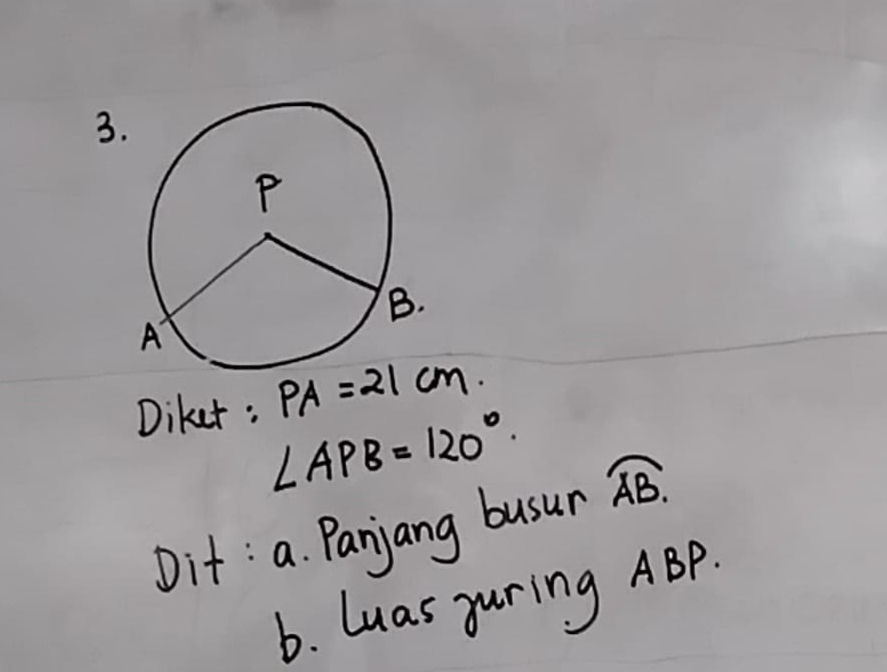 3.
P
A
B.
Diket : PA = 21 cm.
∠APB = 120°.
Dit : a. Panjang busur A͡B.
b. Luas juring ABP.